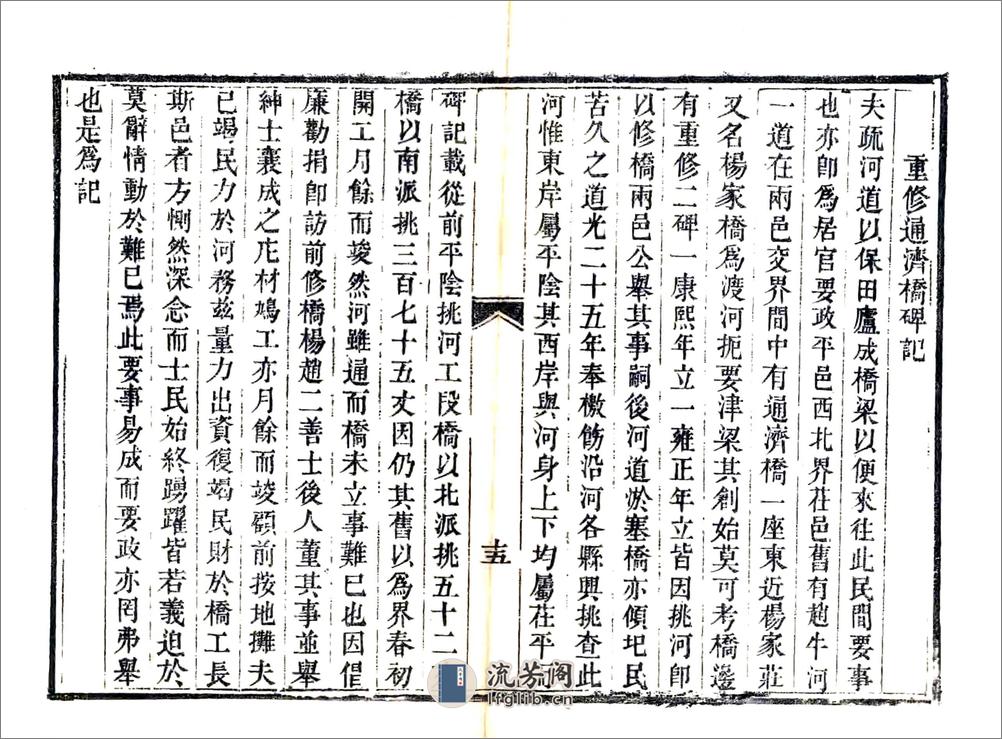 重修通濟橋碑記
夫疏河道以保田廬成橋梁以便來往此民間要事
也亦卽爲居官要政平邑西北界茌邑舊有趙牛河
一道在兩邑交界間中有通濟橋一座東近楊家莊
又名楊家橋爲渡河扼要津梁其創始莫可考橋邊
有重修二碑一康熙年立一雍正年立皆因挑河卽
以修橋兩邑公舉其事嗣後河道淤塞橋亦傾圯民
苦久之道光二十五年奉檄飭沿河各縣興挑查此
河惟東岸屬平陰其西岸與河身上下均屬茌平
十五
碑記載從前平陰挑河工段橋以北派挑五十二
橋以南派挑三百七十五丈因仍其舊以爲界春初
開工月餘而竣然河雖通而橋未立事難已也因倡
廉勸捐卽訪前修橋楊趙二善士後人董其事並舉
紳士襄成之庀材鳩工亦月餘而竣顧前按地攤夫
已竭民力於河務茲量力出資復竭民財於橋工長
斯邑者方惻然深念而士民始終踴躍皆若義迫於
莫辭情動於難已焉此要事易成而要政亦罔弗舉
也是爲記
流芳閣
lfglib.cn